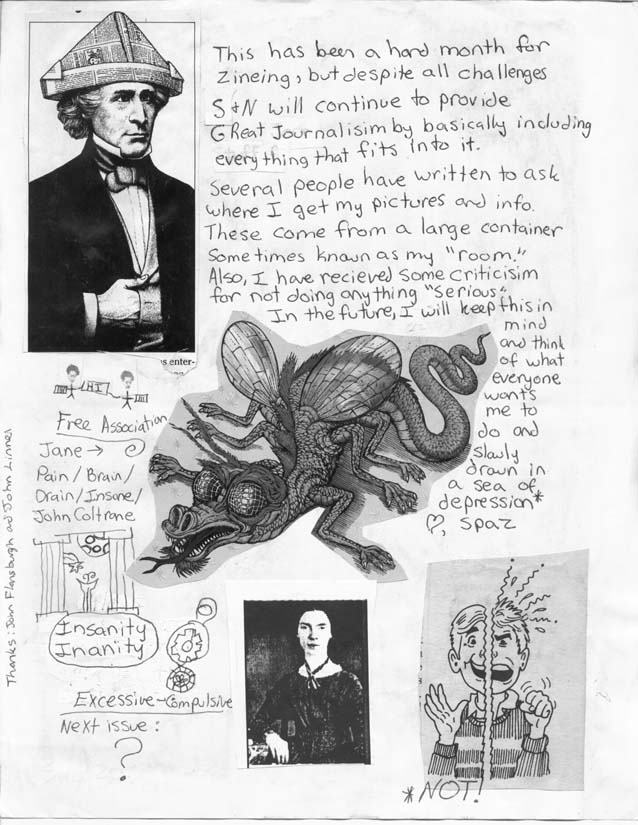 This has been a hard month for
zineing, but despite all challenges
S+N will continue to provide
Great Journalisim by basically including
everything that fits into it.
Several people have written to ask
where I get my pictures and info.
These come from a large container
Sometimes known as my "room."
Also, I have recieved some criticisim
for not doing anything "serious".
In the future, I will keep this in
mind
and think
of what
everyone
wants
me to
do and
slowly
drown in
a sea of
depression*
♡, Spaz
us enter-
HI
Free Association
Jane →
Pain / Brain /
Drain / Insane /
John Coltrane
Insanity
Inanity
Excessive-Compulsive
Next issue:
?
Thanks: John Flansburgh and John Linnel
*NOT!